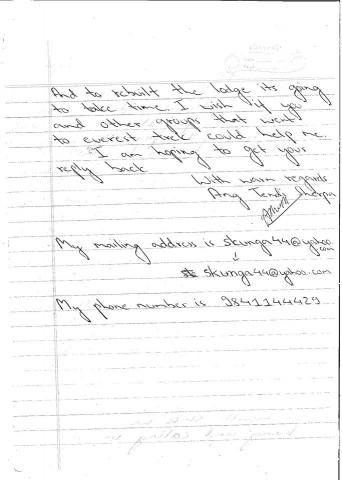 And to rebuilt the lodge its going
to take time. I wish if you
and other groups that went
to everest trek could help me.
I am hoping to get your
reply back
With warm regards
Ang Tendi Sherpa
My mailing address is skunga44@yahoo.com
skunga44@yahoo.com
My phone number is 9841144429